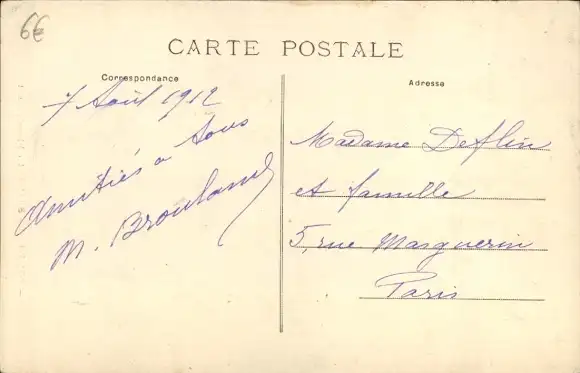 6€
CARTE POSTALE
Correspondance
7 Août 1912
Amitiés a tous
M. Brouland
Adresse
Madame Deflin
et famille
5, rue Marguerin
Paris